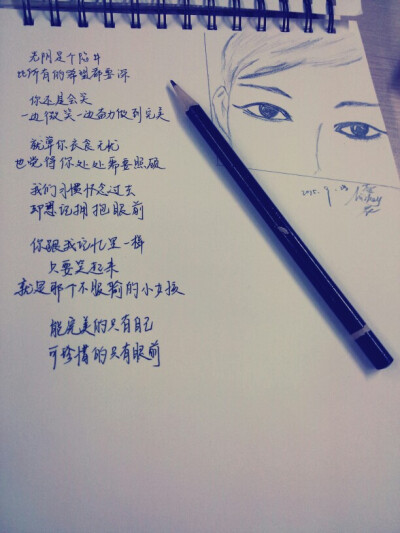 光阴是个陷井
比所有的雄壮都要深
你还是会笑
一边微笑一边努力做到完美
就算你衣食无忧
也觉得你处处需要照顾
我们习惯怀念过去
却忘记拥抱眼前
你跟我记忆里一样
只要笑起来
就是那个不服输的小女孩
能完美的只有自己
可珍惜的只有眼前
2015.9.